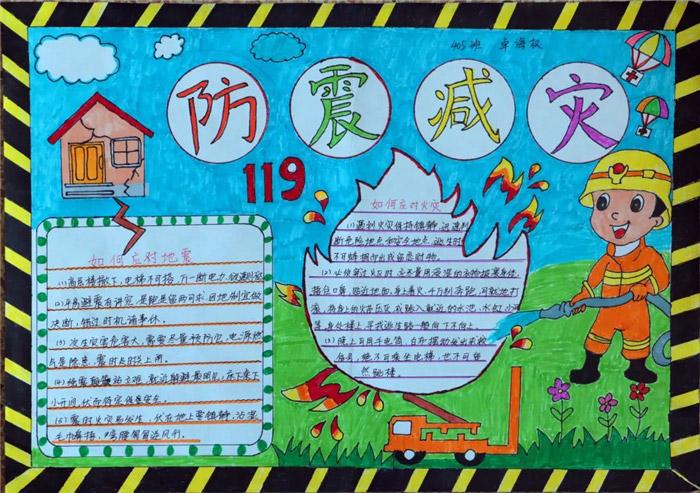 405班 卓海权
防震减灾
119
如何应对地震
(1)高层楼撤下,电梯不可搭,万一断电力,
(2)平房避震有讲究,是跑是留两可求,因地制宜做
决断,错过时机请事休。
(3)次生灾害危害大,需要尽量预防它,电源燃
是隐患,震时及时关上闸。
(4)强震颠簸站立难,就近躲避最明见,床下桌下
小开间,伏而待定保安全。
(5)震时火灾易发生,伏在地上要镇静,沾湿
毛巾鼻捂,弯腰匍匐逆风行。
如何应对火灾
(1)遇到火灾保持镇静,迅速判
断危险地点和安全地点,逃生时
不可蜂拥而出或留恋财物。
(2)必须穿过火时,应尽量用浸湿的衣物披裹身体,
捂住口鼻,贴近地面,身上着火,千万别奔跑,可就地打
滚,将身上的火苗压灭,或跳入就近的水池、水缸、小
等,身处楼上,寻找逃生路一般向下不向上。
(3)晚上可用手电筒、白布摆动发出求救
信号,绝不可乘坐电梯,也不可贸
然跳楼。